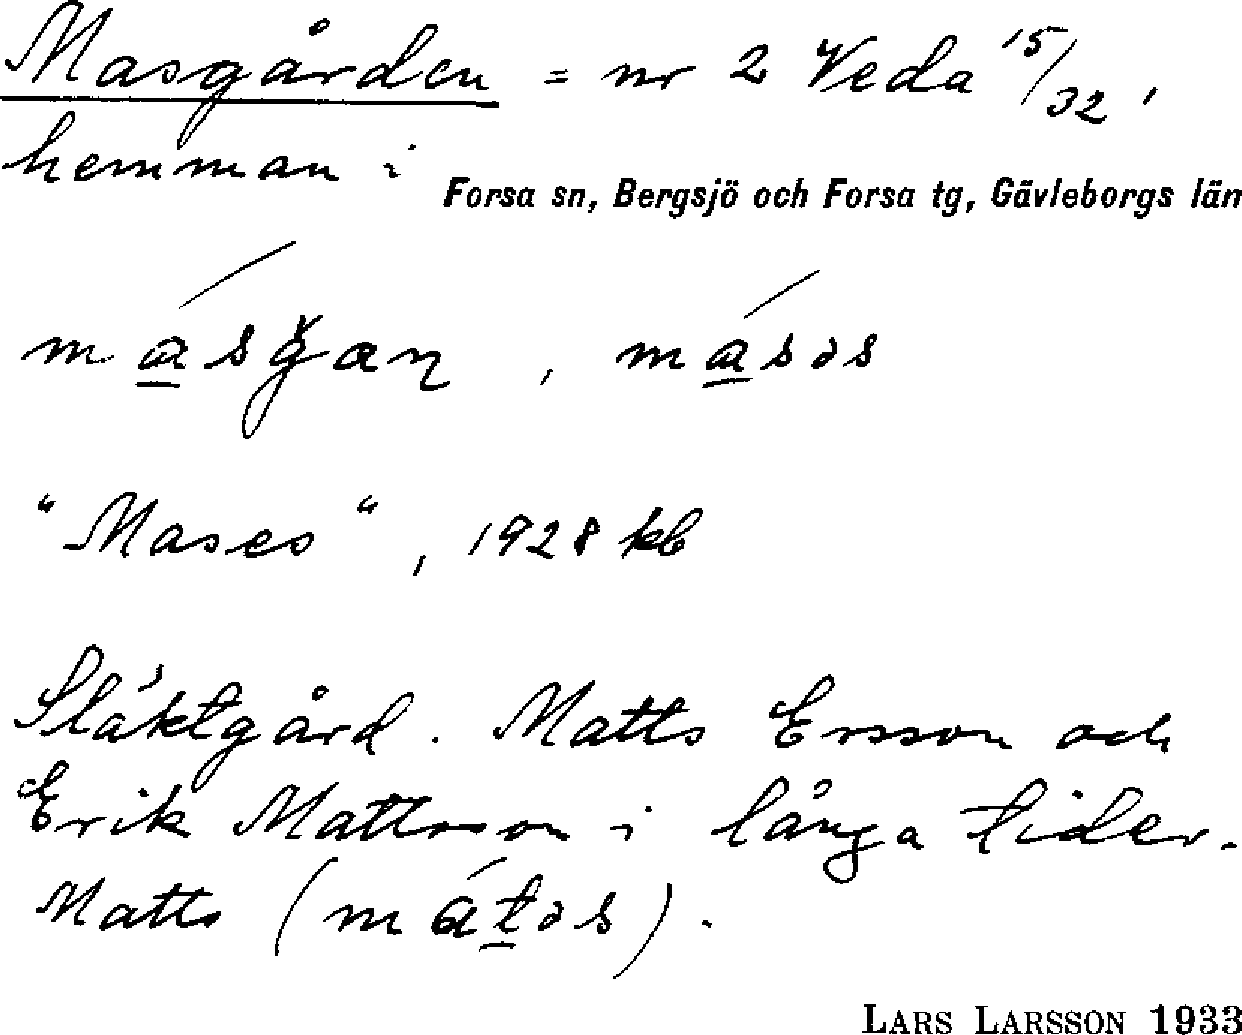 Masgården = nr 2 Veda 15/32,
hemman i
Forsa sn, Bergsjö och Forsa tg, Gävleborgs län
má̱sǥan̡, má̱səs
"Mases", 1928 kb
Släktgård. Matts Ersson och
Erik Mattsson i långa tider.
Matts (máṯəs).
LARS LARSSON 1933